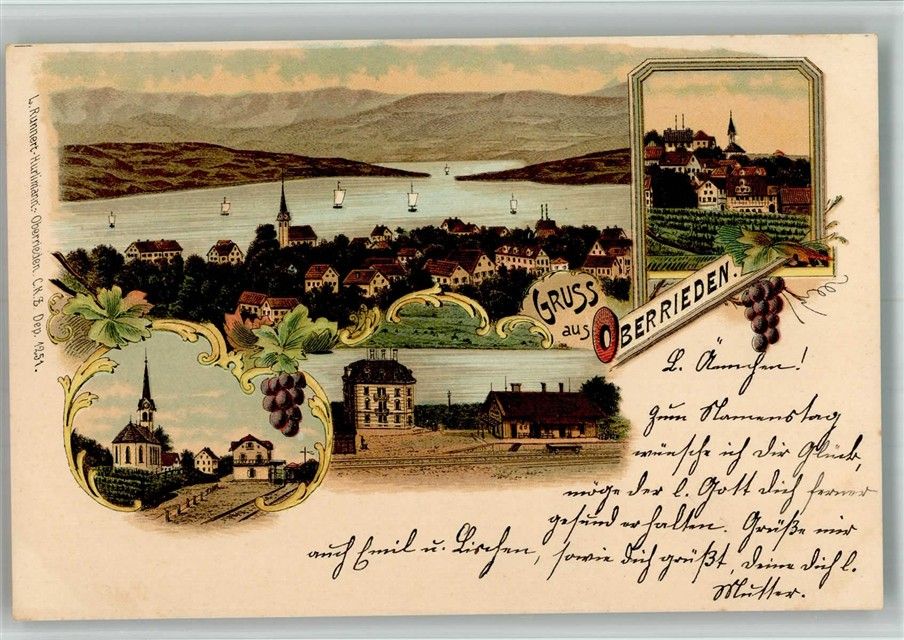 L. Runnert-Hürlimann - Oberrieden. C.K.Z Dep. 1251.
GRUSS
aus OBERRIEDEN.
L. Ännchen!
Zum Namenstag
wünsche ich dir Glück,
möge der l. Gott dich ferner
gesund erhalten. Grüße mir
auch Emil u. Lischen, sowie dich grüßt, deine dich l.
Mutter.